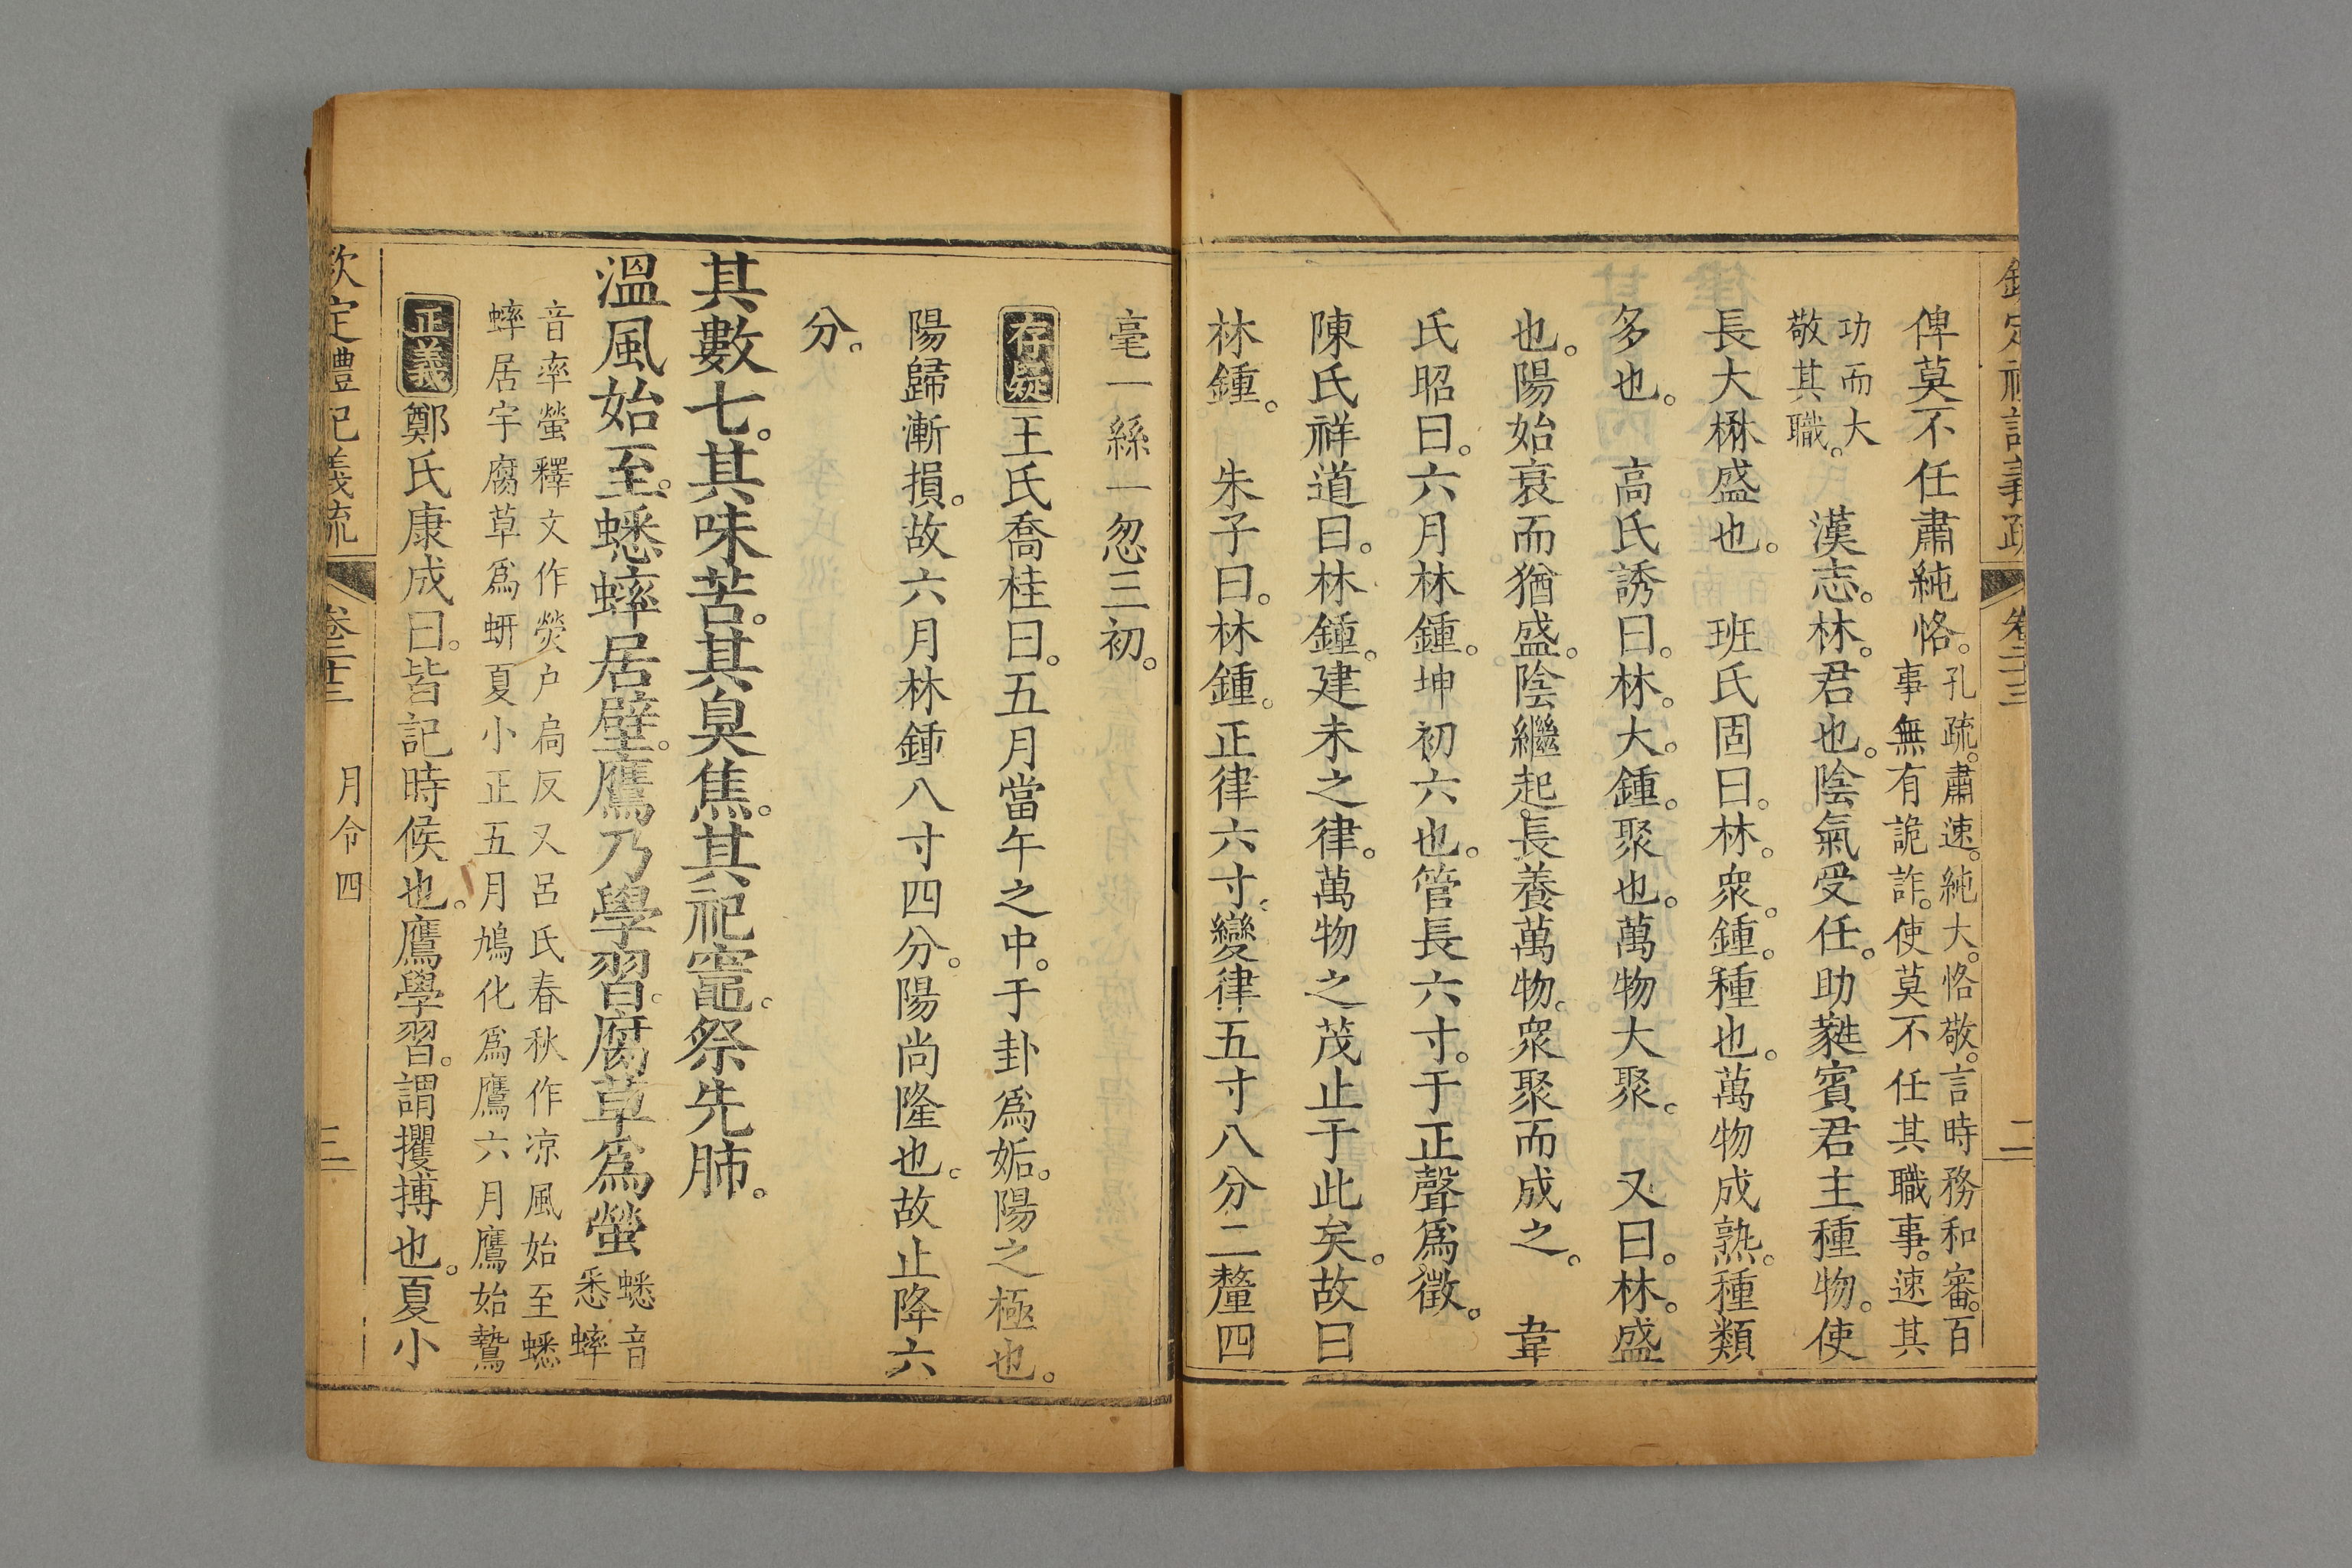 欽定禮記義疏 卷二十三 二
俾莫不任肅純恪。孔疏。肅速。純大。恪敬。言時務和審。百
事無有詭詐。使莫不任其職事。速其
功而大
敬其職。 漢志。林。君也。陰氣受任。助蕤賓君主種物。使
長大楙盛也。 班氏固曰。林。衆。鍾。種也。萬物成熟。種類
多也。 高氏誘曰。林。大。鍾。聚也。萬物大聚。 又曰。林。盛
也。陽始衰而猶盛。陰繼起。長養萬物。衆聚而成之。 韋
氏昭曰。六月林鍾。坤初六也。管長六寸。于正聲爲徵。
陳氏祥道曰。林鍾。建未之律。萬物之茂止于此矣。故曰
林鍾。 朱子曰。林鍾。正律六寸。變律五寸八分二釐四
毫一絲一忽三初。
存疑 王氏喬桂曰。五月當午之中。于卦爲姤。陽之極也。
陽歸漸損。故六月林鍾八寸四分。陽尚隆也。故止降六
分。
其數七。其味苦。其臭焦。其祀竈。祭先肺。
溫風始至。蟋蟀居壁。鷹乃學習。腐草爲螢 蟋音
悉蟀
音率螢釋文作熒户扃反又呂氏春秋作凉風始至蟋
蟀居宇腐草爲蚈夏小正五月鳩化爲鷹六月鷹始鷙
正義 鄭氏康成曰。皆記時候也。鷹學習。謂攫搏也。夏小
欽定禮記義疏 卷二十三 月令四 三